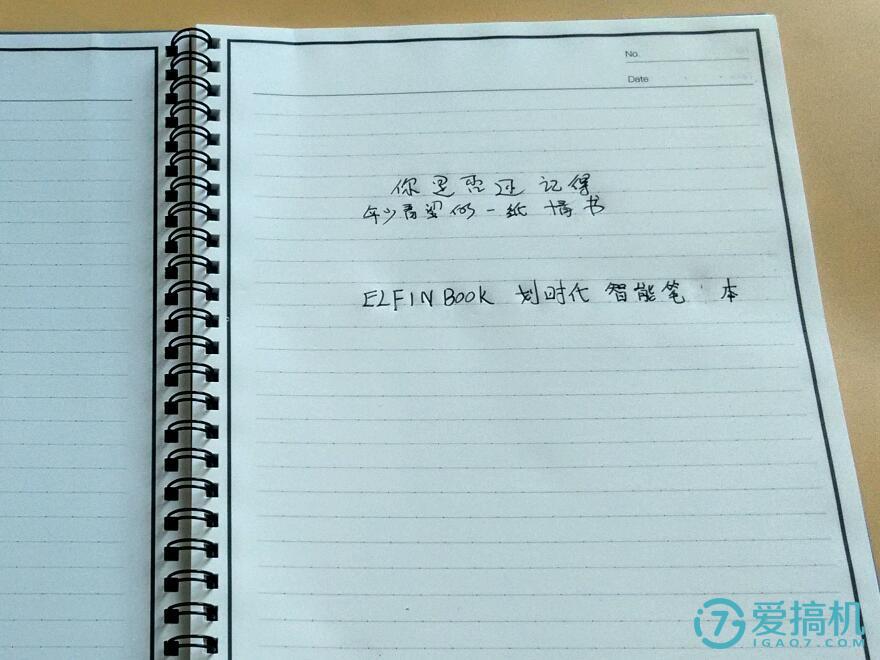 No.
Date
你是否还记得
年少望一纸情书
ELFIN BOOK 划时代 智能笔 本
爱搞机
IGAO7.COM